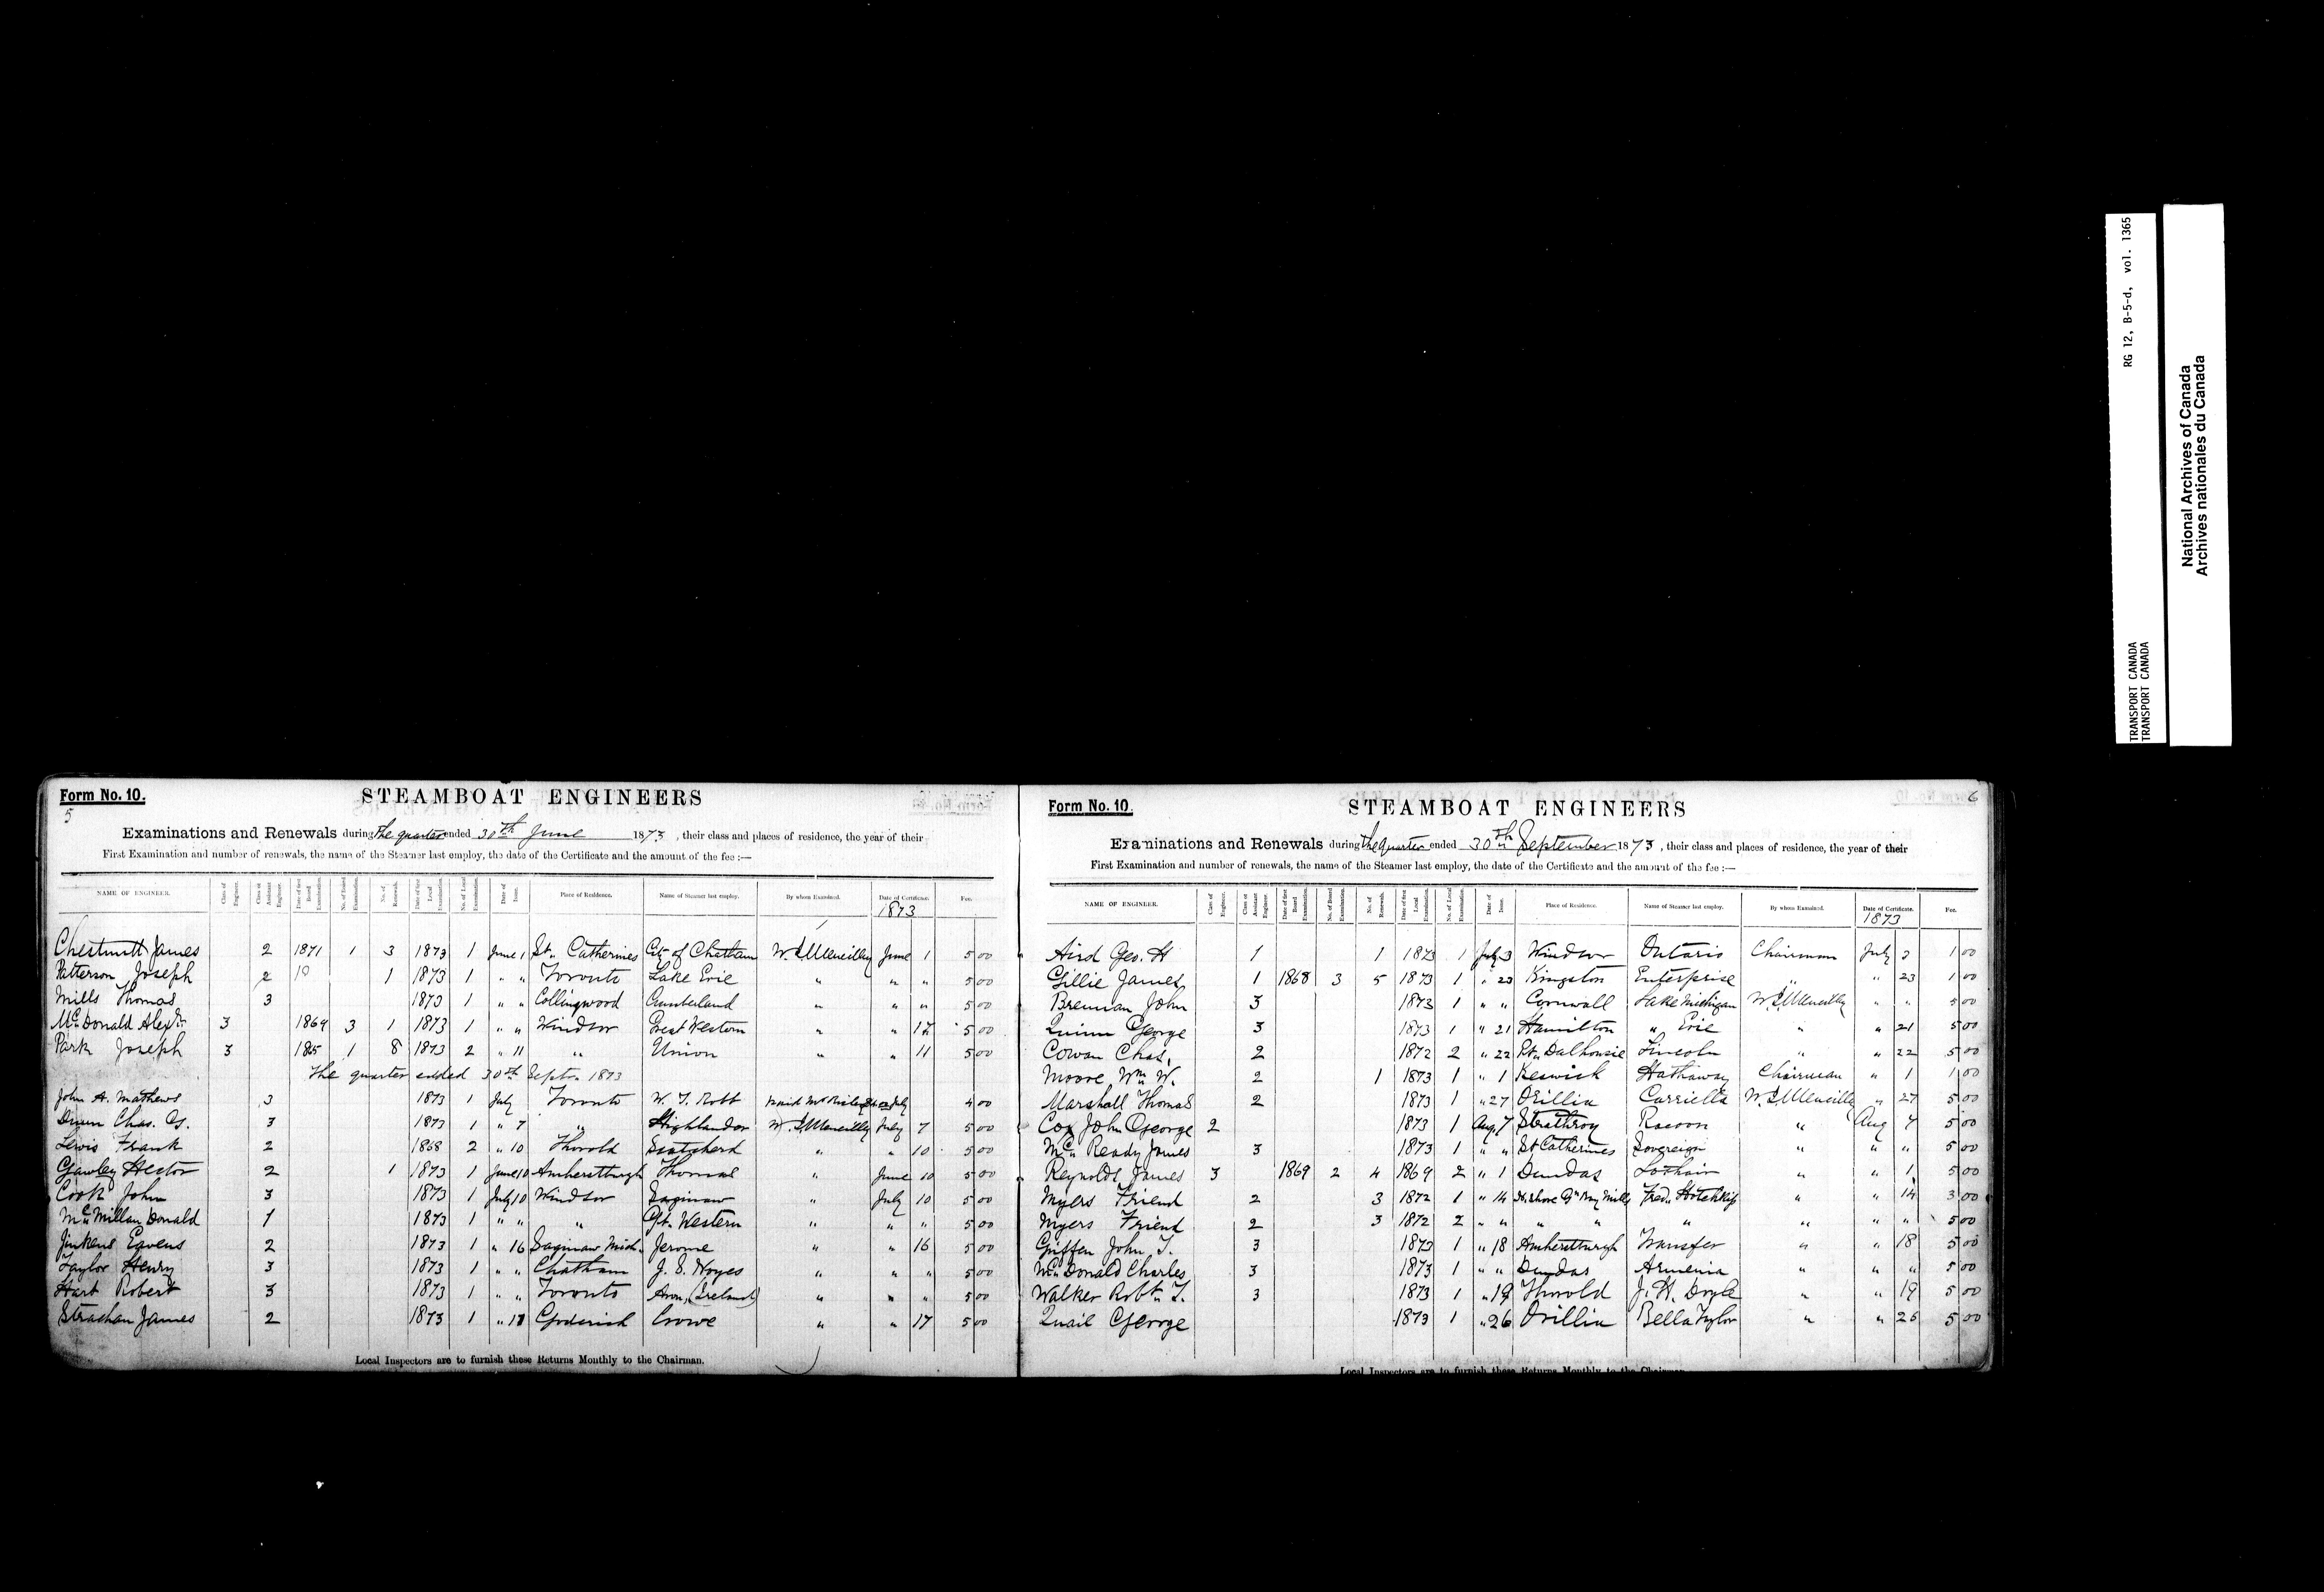 Form No. 10.
5
STEAMBOAT ENGINEERS
Examinations and Renewals during the quarter ended 30th June 1873, their class and places of residence, the year of their
First Examination and number of renewals, the name of the Steamer last employ, the date of the Certificate and the amount of the fee :—
NAME OF ENGINEER. Class of Engineer. Class of Assistant Engineer. Date of first Board Examination. No. of Board Examination. No. of Renewals. Date of first Local Examination. No. of Local Examination. Date of Issue. Place of Residence. Name of Steamer last employ. By whom Examined. Date of Certificate. Fee.
1873
Chestnutt James 2 1871 1 3 1873 1 June 1 St. Catherines City of Chatham June 1 5 00
Patterson Joseph 2 1 1873 1 " " Toronto Lake Erie " " " 5 00
Mills Thomas 3 1873 1 " " Collingwood Cumberland " " " 5 00
McDonald Alexr. 3 1869 3 1 1873 1 " " Windsor Great Western " " 5 00
Park Joseph 3 1865 1 8 1873 2 " 11 " Union " " 11 5 00
The quarter ended 30th Septr. 1873
John A. Mathews 3 1873 1 July Toronto W. T. Robb July 4 00
Dunn Chas. G. 3 1873 1 " 7 " Highlander July 7 5 00
Lewis Frank 2 1868 2 " 10 Thorold Scatcherd " " 10 5 00
Gawley Hector 2 1 1873 1 June 10 Amherstburgh Thomas " June 10 5 00
Cook John 3 1873 1 July 10 Windsor Saginaw " July 10 5 00
McMillan Donald 1 1873 1 " " " Gt. Western " " " 5 00
Jinkens 2 1873 1 " 16 Saginaw Mich. Jerome " " 16 5 00
Taylor Henry 3 1873 1 " " Chatham J. S. Noyes " " " 5 00
Hart Robert 3 1873 1 " " Toronto Avon, (Ireland) " " " 5 00
Strachan James 2 1873 1 " 17 Goderich Crowe " " 17 5 00
Local Inspectors are to furnish these Returns Monthly to the Chairman.
Form No. 10.
6
STEAMBOAT ENGINEERS
Examinations and Renewals during the Quarter ended 30th September 1873, their class and places of residence, the year of their
First Examination and number of renewals, the name of the Steamer last employ, the date of the Certificate and the amount of the fee :—
NAME OF ENGINEER. Class of Engineer. Class of Assistant Engineer. Date of first Board Examination. No. of Board Examination. No. of Renewals. Date of first Local Examination. No. of Local Examination. Date of Issue. Place of Residence. Name of Steamer last employ. By whom Examined. Date of Certificate. Fee.
1873
Aird Geo. H 1 1 1873 1 July 3 Windsor Ontario Chairman July 3 1 00
Gillie James 1 1868 3 5 1873 1 " 23 Kingston Enterprise " " 23 1 00
Brennan John 3 1873 1 " " Cornwall Lake Michigan " " 5 00
Quinn George 3 1873 1 " 21 Hamilton " Erie " " 21 5 00
Cowan Chas. 2 1872 2 " 22 Pt. Dalhousie Lincoln " " 22 5 00
Moore Wm. W. 2 1 1873 1 " 1 Keswick Hathaway Chairman " 1 1 00
Marshall Thomas 2 1873 1 " 27 Orillia Carriella " 27 5 00
Cox John George 2 1873 1 Aug. 7 Strathroy Racoon " Aug 7 5 00
McReady James 3 1873 1 " " St Catherines Sovereign " " " 5 00
Reynolds James 3 1869 2 4 1869 2 " 1 Dundas Lothair " " 1 5 00
Myers Friend 2 3 1872 1 " 14 Fred. Hotchkiss " " 14 3 00
Myers Friend 2 3 1872 2 " " " " " " " " 5 00
Griffen John T. 3 1873 1 " 18 Amherstburgh Transfer " " 18 5 00
McDonald Charles 3 1873 1 " " Dundas Armenia " " " 5 00
Walker Robt. T. 3 1873 1 " 19 Thorold J. H. Doyle " " 19 5 00
Quail George 1873 1 " 26 Orillia Bella Taylor " " 26 5 00
Local Inspectors are to furnish these Returns Monthly to the Chairman
TRANSPORT CANADA RG 12, B-5-d, vol. 1365
TRANSPORT CANADA
National Archives of Canada
Archives nationales du Canada